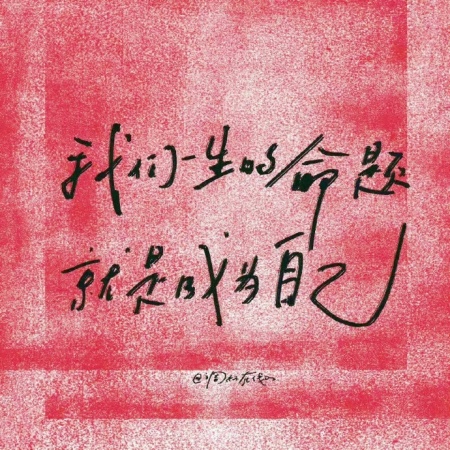 我们一生的命题
就是成为自己